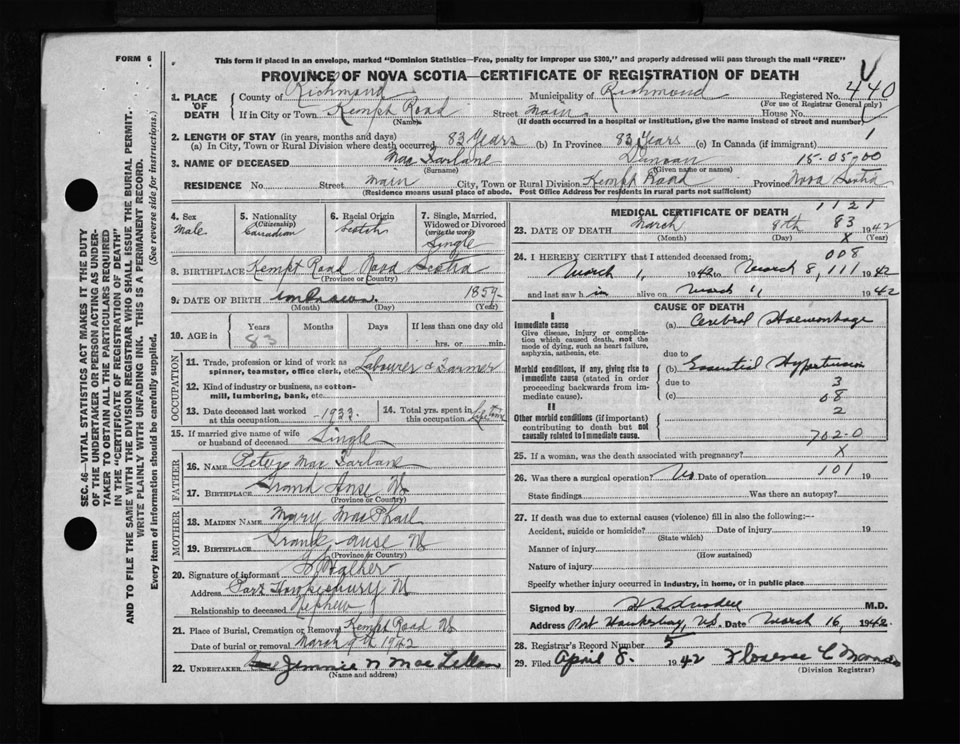 FORM 6
This form if placed in an envelope, marked "Dominion Statistics—Free, penalty for improper use $300," and properly addressed will pass through the mail "FREE"
PROVINCE OF NOVA SCOTIA—CERTIFICATE OF REGISTRATION OF DEATH
1. PLACE OF DEATH County of Richmond Municipality of Richmond Registered No. 440
(For use of Registrar General only)
If in City or Town Kempt Road Street Main House No.
(Name) (If death occurred in a hospital or institution, give the name instead of street and number)
2. LENGTH OF STAY (in years, months and days)
(a) In City, Town or Rural Division where death occurred 83 Years (b) In Province 83 Years (c) In Canada (if immigrant)
3. NAME OF DECEASED Mac Farlane Duncan 15-05-00
(Surname) (Given name or names)
RESIDENCE No. Street Main City, Town or Rural Division Kempt Road Province Nova Scotia
(Residence means usual place of abode. Post Office Address for residents in rural parts not sufficient)
4. Sex Male
5. Nationality (Citizenship) Canadian
6. Racial Origin Scotch
7. Single, Married, Widowed or Divorced (write the word) Single
8. BIRTHPLACE Kempt Road Nova Scotia
(Province or Country)
9. DATE OF BIRTH unknown 1859
(Month) (Day) (Year)
10. AGE in Years Months Days If less than one day old
83 hrs. or min.
OCCUPATION
11. Trade, profession or kind of work as spinner, teamster, office clerk, etc. Labourer & Farmer
12. Kind of industry or business, as cotton-mill, lumbering, bank, etc.
13. Date deceased last worked at this occupation 1933
14. Total yrs. spent in this occupation Lifetime
15. If married give name of wife or husband of deceased Single
FATHER
16. NAME Peter Mac Farlane
17. BIRTHPLACE Grand Anse NS
(Province or Country)
MOTHER
18. MAIDEN NAME Mary MacPhail
19. BIRTHPLACE Grand Anse NS
(Province or Country)
20. Signature of informant Walker
Address Port Hawkesbury NS
Relationship to deceased Nephew
21. Place of Burial, Cremation or Removal Kempt Road NS
Date of burial or removal March 9th 1942
22. UNDERTAKER Jimmie N MacLellan
(Name and address)
1121
MEDICAL CERTIFICATE OF DEATH
23. DATE OF DEATH March 8th 83 1942
(Month) (Day) X (Year)
24. I HEREBY CERTIFY that I attended deceased from: 008
March 1, 1942 to March 8, 111 1942
and last saw him alive on March 1, 1942
CAUSE OF DEATH
I
Immediate cause
Give disease, injury or complication which caused death, not the mode of dying, such as heart failure, asphyxia, asthenia, etc.
(a) Cerebral Haemorrhage
due to
Morbid conditions, if any, giving rise to immediate cause (stated in order proceeding backwards from immediate cause).
(b) Essential Hypertension
due to 3
(c) 08
II
Other morbid conditions (if important) contributing to death but not causally related to immediate cause.
2
702-0
25. If a woman, was the death associated with pregnancy? X
26. Was there a surgical operation? No Date of operation 101 19
State findings Was there an autopsy?
27. If death was due to external causes (violence) fill in also the following:—
Accident, suicide or homicide? Date of injury 19
(State which)
Manner of injury
(How sustained)
Nature of injury
Specify whether injury occurred in industry, in home, or in public place
Signed by M.D.
Address Port Hawkesbury, NS. Date March 16, 1942
28. Registrar's Record Number 5
29. Filed April 8. 1942 Florence C
(Division Registrar)
SEC. 46—VITAL STATISTICS ACT MAKES IT THE DUTY
OF THE UNDERTAKER OR PERSON ACTING AS UNDER-
TAKER TO OBTAIN ALL THE PARTICULARS REQUIRED
IN THE "CERTIFICATE OF REGISTRATION OF DEATH"
AND TO FILE THE SAME WITH THE DIVISION REGISTRAR WHO SHALL ISSUE THE BURIAL PERMIT.
WRITE PLAINLY WITH UNFADING INK. THIS IS A PERMANENT RECORD.
Every item of information should be carefully supplied. (See reverse side for instructions.)